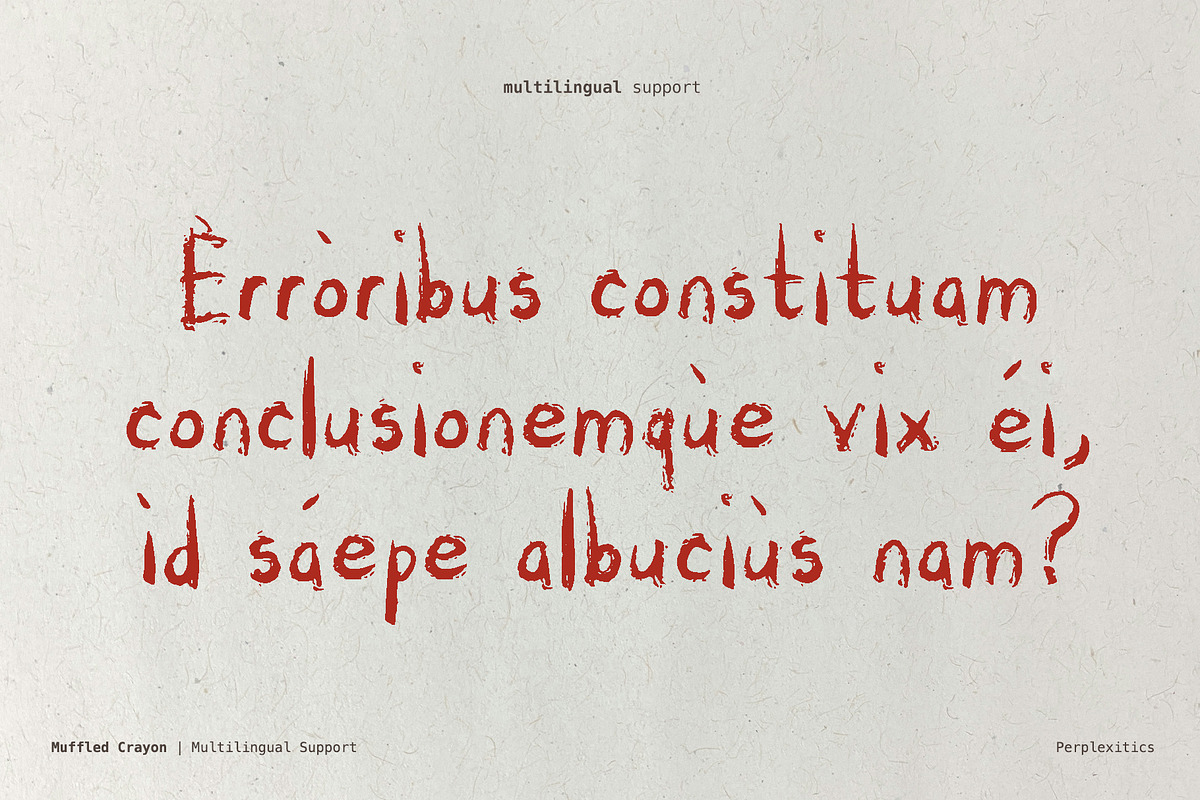 multilingual support
Èrròribus constituam
conclusionemqùe vix éi,
ìd sáepe albuciùs nam?
Muffled Crayon | Multilingual Support
Perplexitics